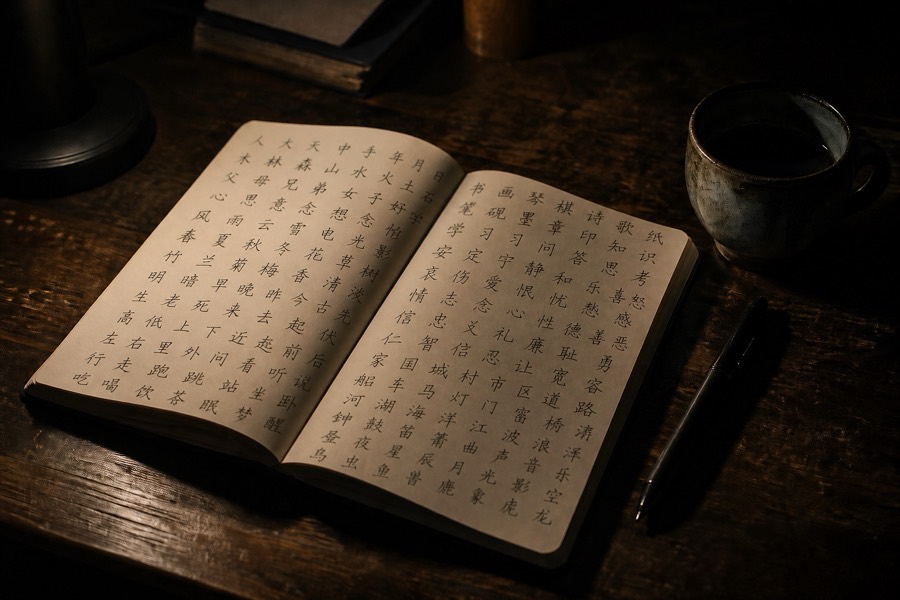 人 大 天 中 手 年 月 日
木 林 森 山 水 火 土 石
父 母 兄 弟 女 子 好 字
心 思 意 念 想 念 怕
风 雨 云 雪 电 光 影
春 夏 秋 冬 花 草 树
竹 兰 菊 梅 香 清 淡
明 暗 早 晚 昨 今 古 先
生 老 死 来 去 起 伏
高 低 上 下 近 起 前 后
左 右 里 外 问 看 听 说
行 走 跑 跳 站 坐 卧
吃 喝 饮 答 眠 梦 醒
书 画 琴 棋 诗 歌 纸
笔 砚 墨 章 印 知 识
学 习 习 问 答 思 考
安 定 宁 静 和 乐 喜 怒
哀 伤 爱 恨 忧 热 感
情 志 念 心 性 德 善 恶
信 忠 义 礼 廉 耻 勇
仁 智 信 忍 让 宽 容
家 国 城 村 市 区 道 路
船 车 马 灯 门 富 桥 涛
河 湖 海 洋 江 波 浪 洋
钟 鼓 笛 箫 曲 声 音 乐
昼 夜 星 辰 月 光 影 空
鸟 虫 鱼 兽 鹿 象 虎 龙